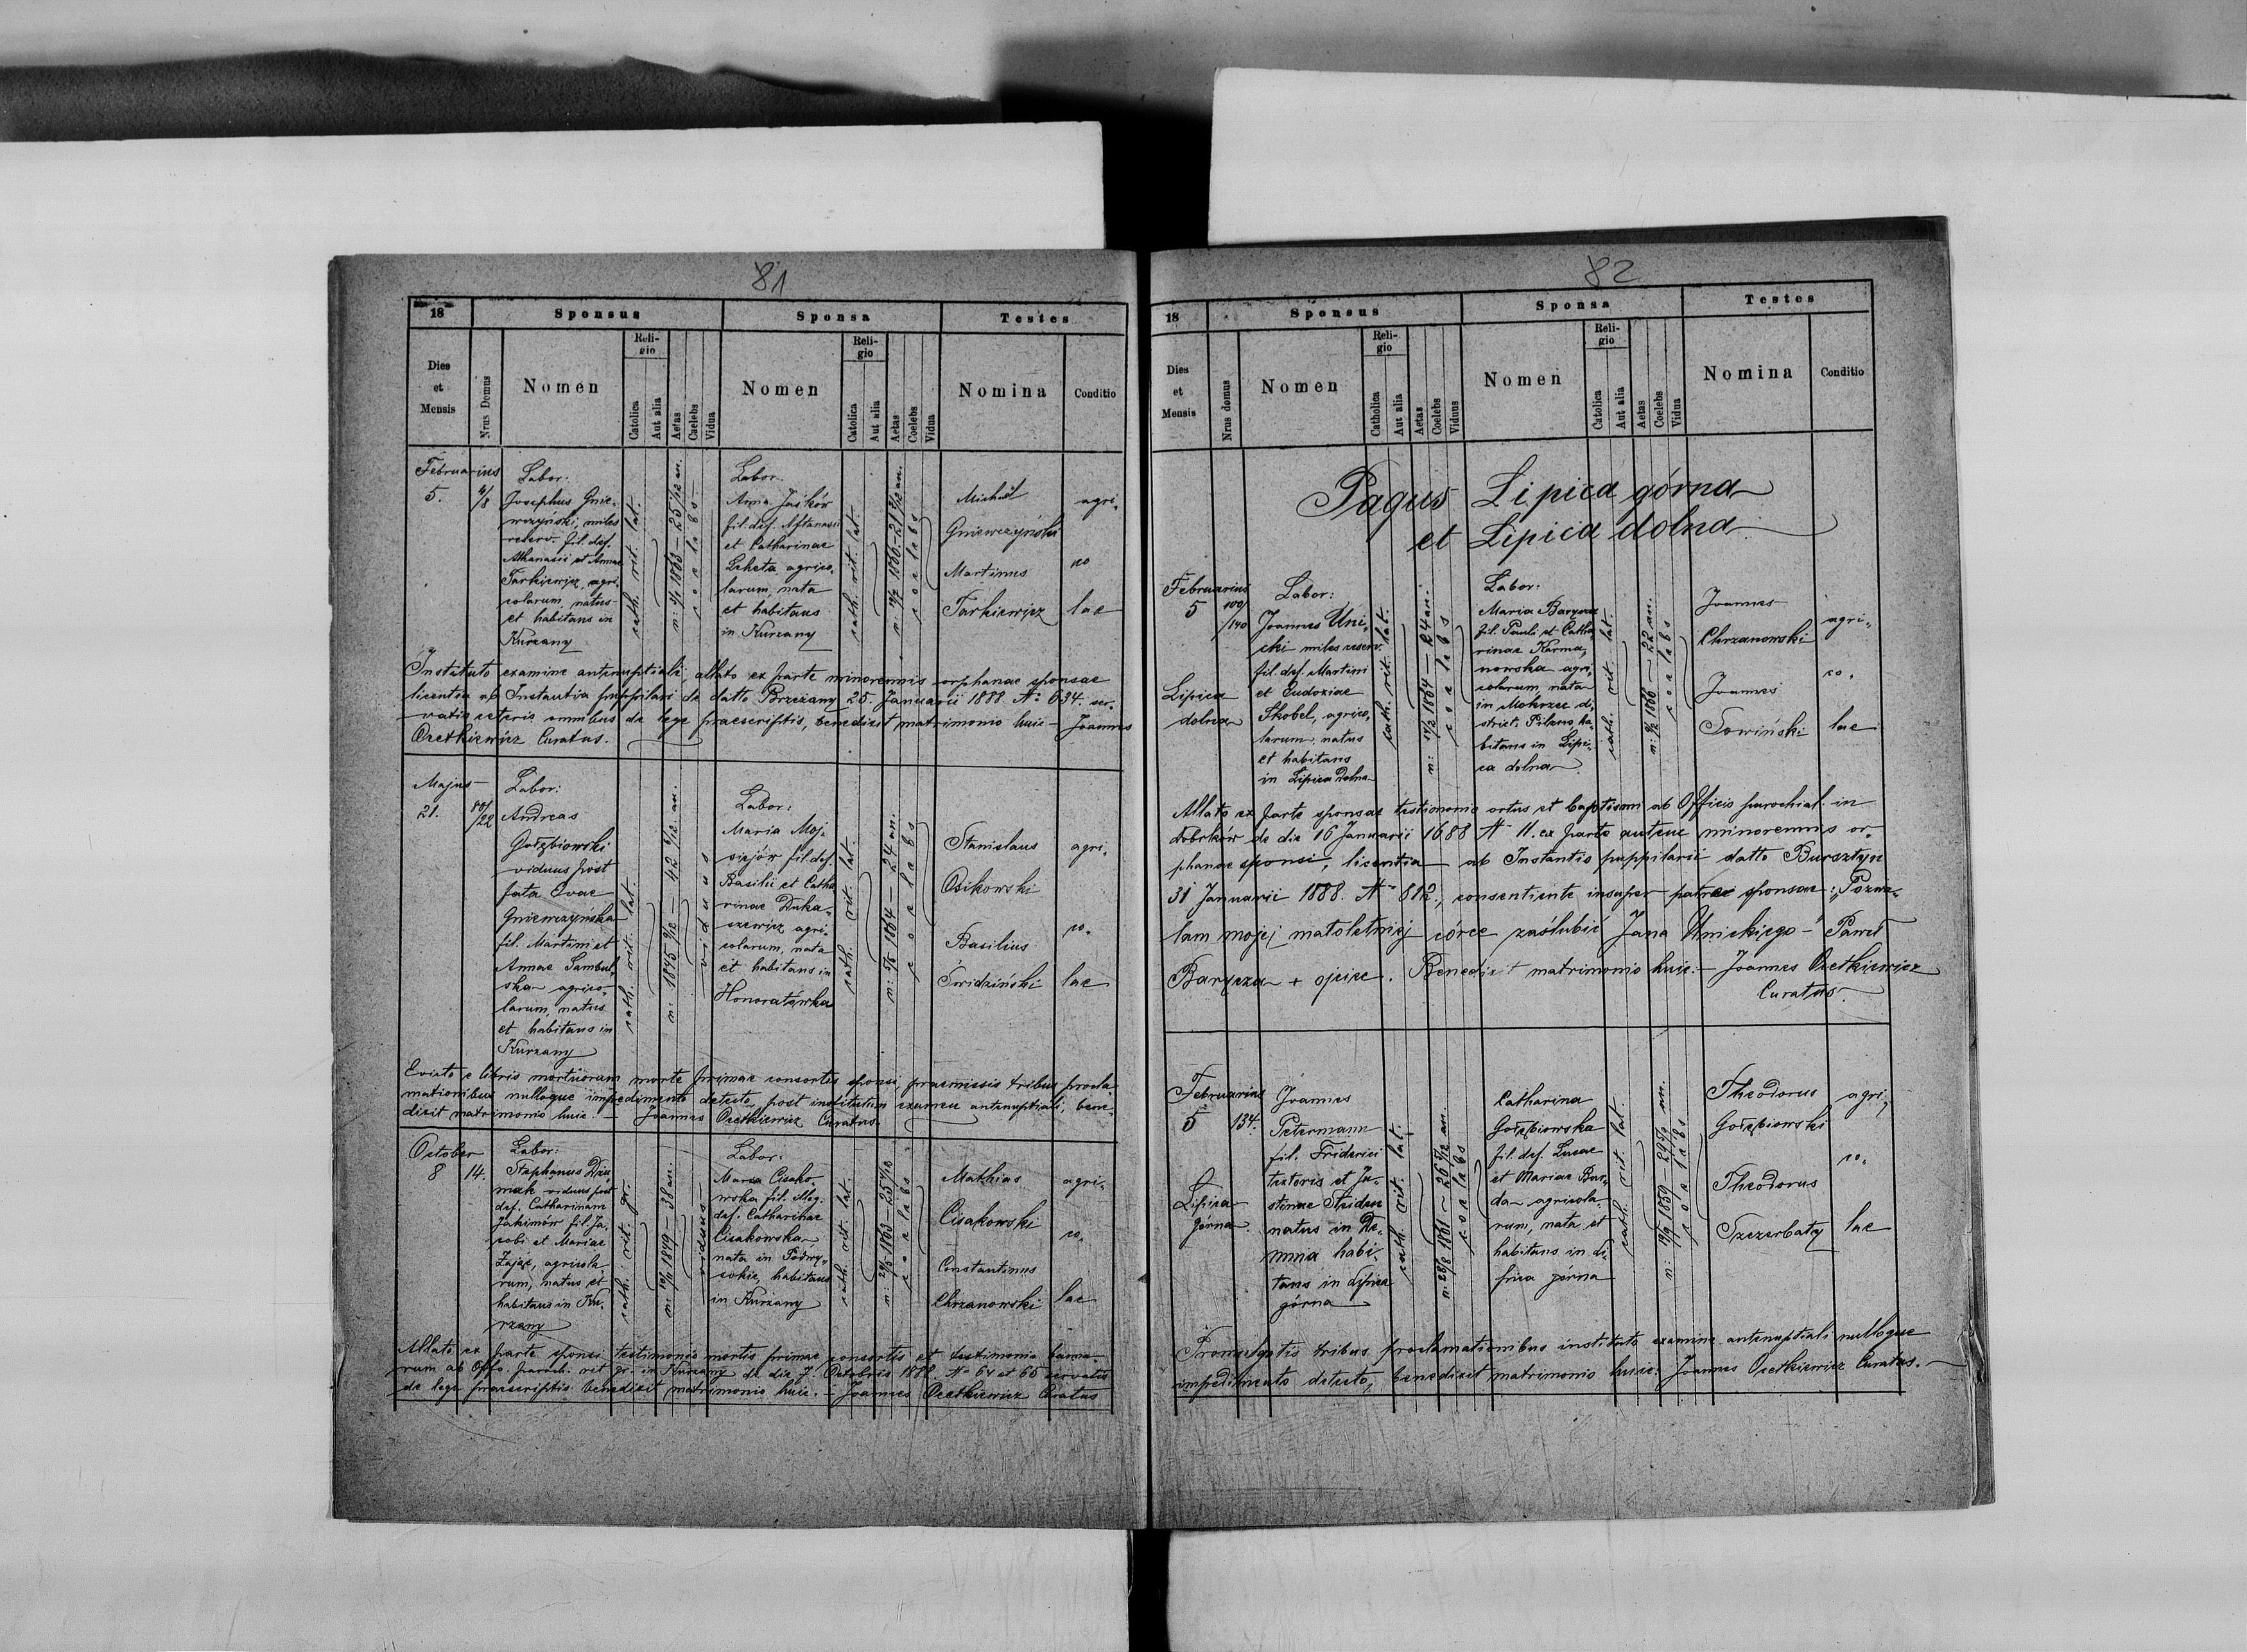 81
18
Sponsus
Sponsa
Testes
Dies et Mensis
Nrus Domus
Nomen
Religio
Catolica
Aut alia
Aetas
Caelebs
Vidua
Nomen
Religio
Catolica
Aut alia
Aetas
Coelebs
Vidua
Nomina
Conditio
Februarius
5.
4/8
Labor.
Josephus Gnie-
wczyński, miles
reserv. fil. def.
Athanasii et Annae
Tarkiewicz, agri-
colarum, natus
et habitans in
Kurzany
cath. rit. lat.
1863 – 25 1/12 an.
coelebs
Labor.
Anna Jaśków
fil. def. Aftanasii
et Catharinae
Lcheta, agrico-
larum, nata
et habitans
in Kurzany
cath. rit. lat.
1866 – 21 an.
coelebs
Michael
Gniewczyński
Martinus
Tarkiewicz
agri-
co
lae
Instituto examine antenuptiali, allato ex parte minorennis orphanae sponsae
licentia ab Instantia puppilari de datto Brzeżany 25. Januarii 1888. N° 634. ser-
vatis ceteris omnibus de lege praescriptis, benedixit matrimonio huic – Joannes
Ocetkiewicz Curatus.
Majus
21.
80/22
Labor:
Andreas
Gołębiowski
viduus post
fata Evae
Gniewczyńska
fil. Martini et
Annae Sambul-
ska agrico-
larum, natus
et habitans in
Kurzany
cath. rit. lat.
n: 1845 – 42 an.
viduus
Labor:
Maria Moj-
siejów fil. def.
Basilii et Catha-
rinae Duka-
szewicz agri-
colarum, nata
et habitans in
Honoratówka
cath. rit. lat.
1864 – 24 an.
coelebs
Stanislaus
Osikowski
Basilius
Świdziński
agri-
co-
lae
Evicto e libris mortuorum morte primae consortis sponsi, praemissis tribus procla-
mationibus nulloque impedimento detecto, post institutum examen antenuptiali, bene-
dixit matrimonio huic – Joannes Ocetkiewicz Curatus.
October
8
14.
Labor:
Stephanus Dzu-
mak viduus post
def. Catharinam
Jakimów fil. Ja-
cobi et Mariae
Zając, agricola-
rum, natus et
habitans in Ku-
rzany
cath. rit. gr.
1849 – 38 an.
viduus
Labor:
Maria Cisako-
wska fil. illeg.
def. Catharinae
Cisakowska,
nata in Podwy-
sokie, habitans
in Kurzany
cath. rit. lat.
1863 – 25
coelebs
Mathias
Cisakowski
Constantinus
Chrzanowski
agri-
co-
lae
Allato ex parte sponsi testimonio mortis primae consortis et testimonio banno-
rum ab Offo. paroch. rit. gr. in Kurzany de die 7. Octobris 1888. N° 64 et 65 servatis
de lege praescriptis benedixit matrimonio huic. – Joannes Ocetkiewicz Curatus
82
18
Sponsus
Sponsa
Testes
Dies et Mensis
Nrus domus
Nomen
Religio
Catholica
Aut alia
Aetas
Coelebs
Viduus
Nomen
Religio
Catolica
Aut alia
Aetas
Coelebs
Vidua
Nomina
Conditio
Pagus Lipica górna
et Lipica dolna
Februarius
5
100/140
Lipica
dolna
Labor:
Joannes Uni-
cki miles reserv.
fil. def. Martini
et Eudoxiae
Skobel, agrico-
larum, natus
et habitans
in Lipica dolna
cath. rit. lat.
1864 – 24 an.
coelebs
Labor:
Maria Barycza
fil. Pauli et Catha-
rinae Karma-
nowska agri-
colarum, nata
in Mokrzec di-
strict. Pilzno, ha-
bitans in Lipi-
ca dolna
cath. rit. lat.
1866 – 22 an.
coelebs
Joannes
Chrzanowski
Joannes
Sowiński
agri-
co-
lae
Allato ex parte sponsae testimonio ortus et baptismi ab Officio parochial. in
Dobrków de die 16 Januarii 1688 N° 11. ex parte autem minorennis or-
phanae sponsi, licentia ab Instantis puppilarii datto Bursztyn
31 Januarii 1888. N° 812., consentiente insuper patre sponsae: „Pozwa-
lam mojej małoletniej córce zaślubić Jana Unickiego – Paweł
Barycza + ojciec. Benedixit matrimonio huic. – Joannes Ocetkiewicz
Curatus.
Februarius
5
134.
Lipica
górna
Joannes
Petermann
fil. Friderici
textoris et Ju-
stinae Striden
natus in De-
mnia habi-
tans in Lipica
górna
cath. rit. lat.
1861 – 26 an.
coelebs
Catharina
Gołębiowska
fil. def. Lucae
et Mariae Bur-
da agricola-
rum, nata et
habitans in Li-
pica górna
cath. rit. lat.
1859 – an.
coelebs
Theodorus
Gołębiowski
Theodorus
Szczerbaty
agri-
co-
lae
Promulgatis tribus proclamationibus instituto examine antenuptiali nulloque
impedimento detecto, benedixit matrimonio huic: Joannes Ocetkiewicz Curatus.